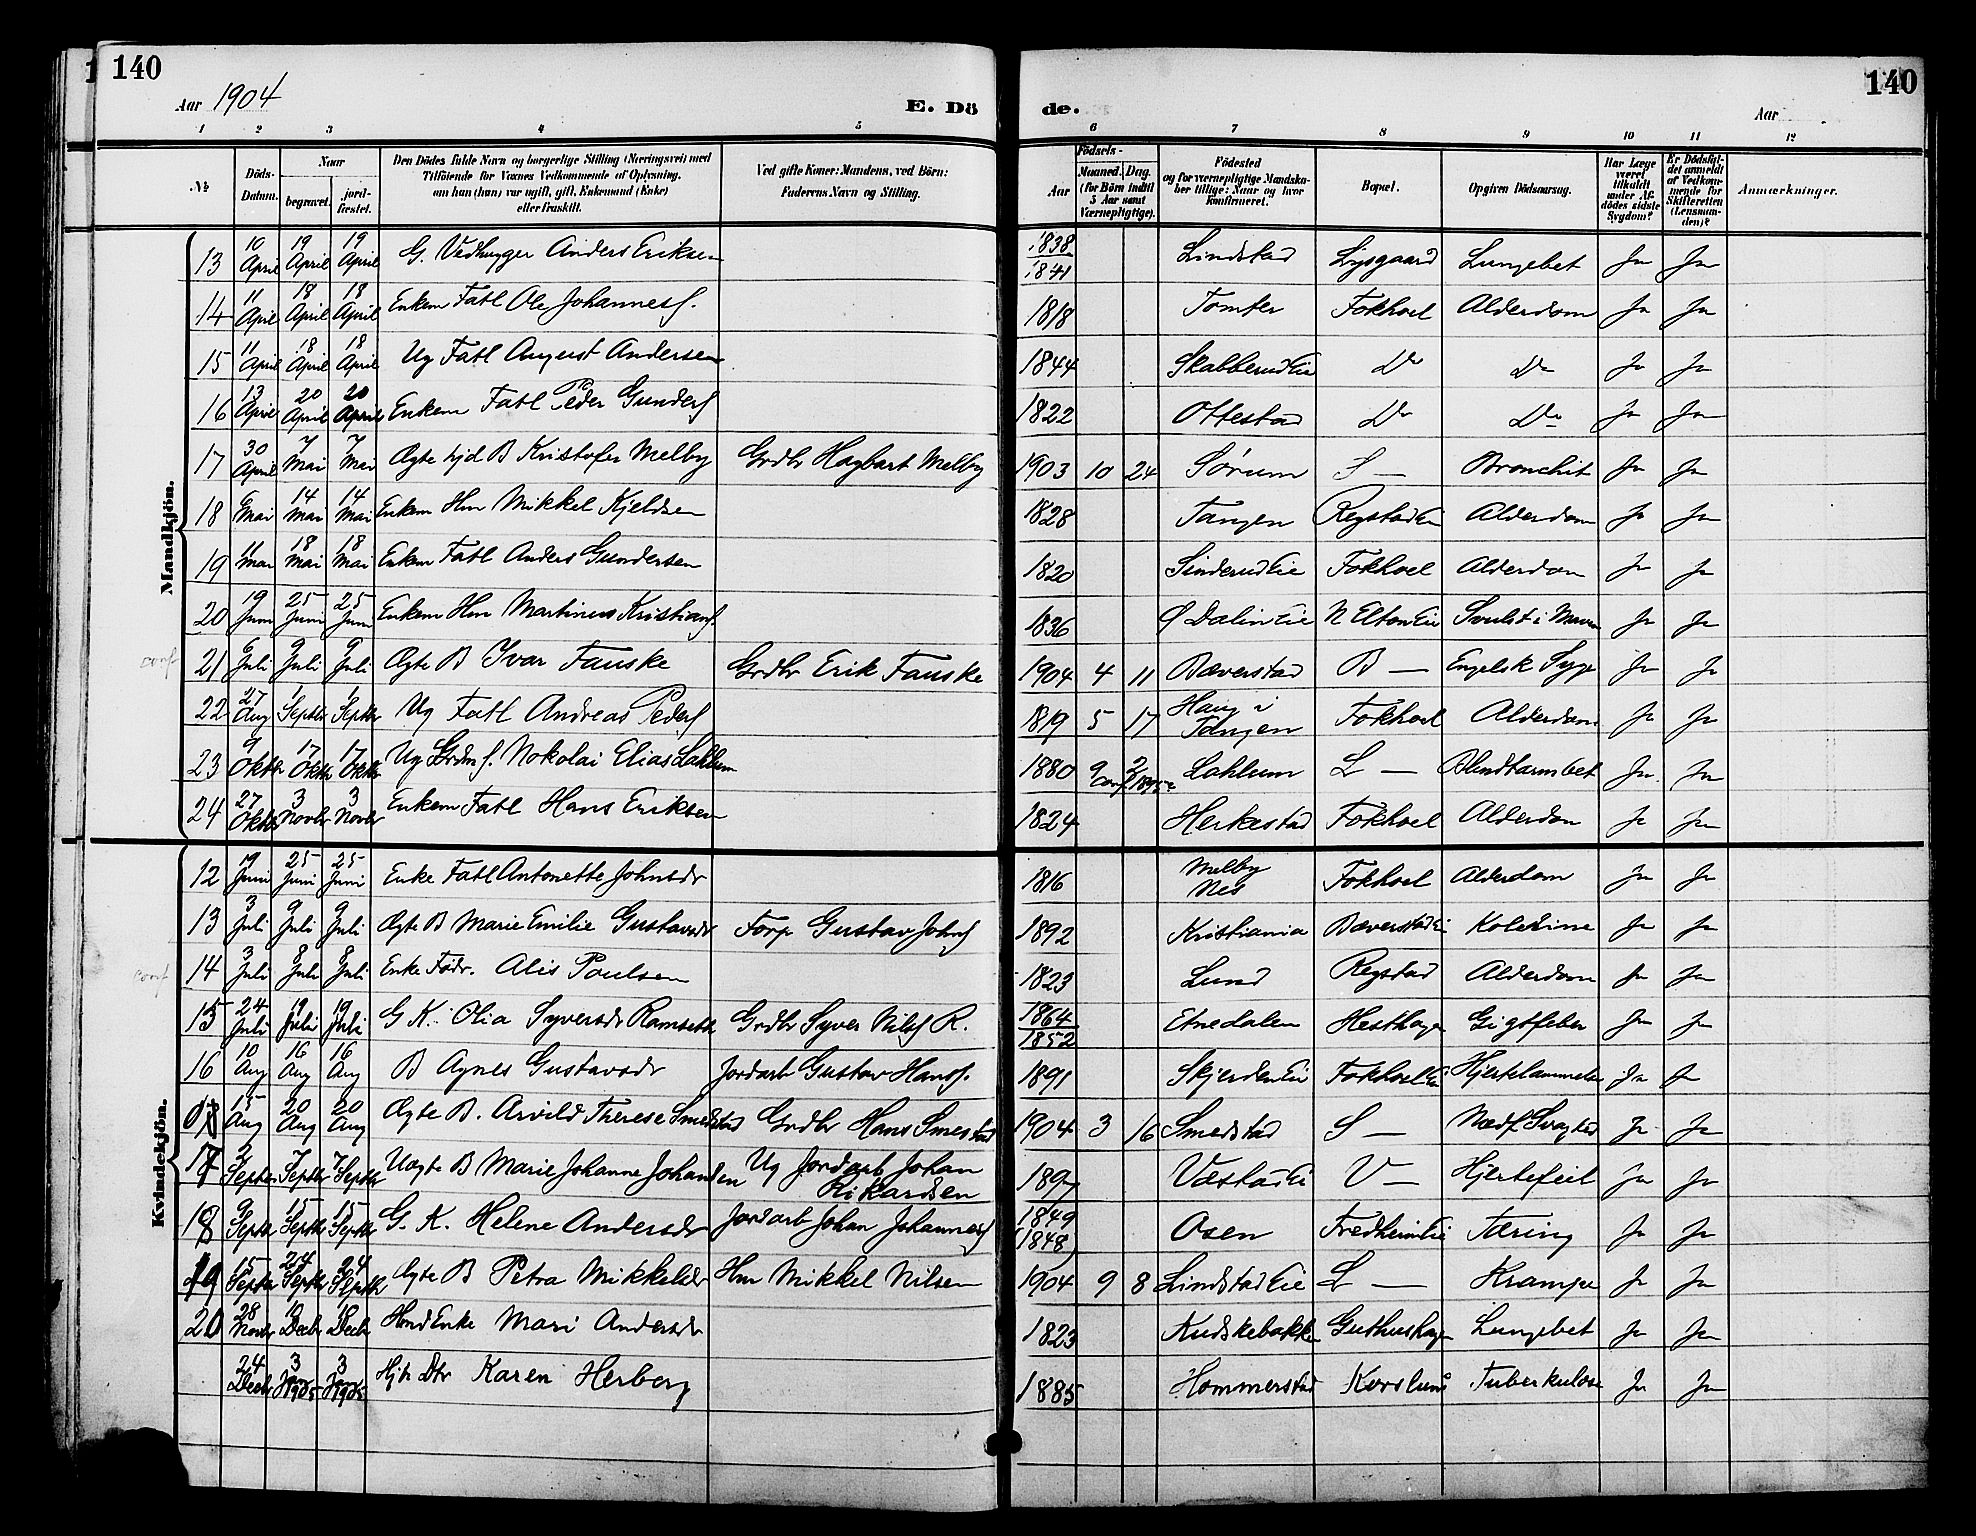 140
140
Aar 1904
E. Dö de.
Aar
1 2 3 4 5 6 7 8 9 10 11 12
№ Döds-Datum. Naar begravet. jord-fæstet. Den Dödes fulde Navn og borgerlige Stilling (Næringsvei) med Tilföiende for Voxnes Vedkommende af Oplysning, om han (hun) var ugift, gift, Enkemand (Enke) eller fraskilt. Ved gifte Koner: Mandens, ved Börn: Faderens Navn og Stilling. Födsels- Aar Maaned. Dag. (for Börn indtil 5 Aar samt Værnepligtige). Födested og for værnepligtige Mandskaber tillige: Naar og hvor konfirmeret. Bopæl. Opgiven Dödsaarsag. Har Læge været tilkaldt under Afdödes sidste Sygdom? Er Dödsfaldet anmeldt af Vedkommende for Skifteretten (Lensmanden)? Anmærkninger.
Mandkjön.
13 10 April 19 April 19 April G. Vedhugger Anders Eriksen 1838 1841 Lindstad Lysgaard Lungebet Ja Ja
14 11 April 18 April 18 April Enkem Fatl Ole Johannesf. 1818 Tomter Fokhoel Alderdom Ja Ja
15 11 April 18 April 18 April Ug Fatl August Andersen 1844 Skabberud Eie Do Do Ja Ja
16 13 April 20 April 20 April Enkem Fatl Peder Gundersf 1822 Ottestad Do Do Ja Ja
17 30 April 7 Mai 7 Mai Ægte hjd B Kristofer Melby Grdbr Hagbart Melby 1903 10 24 Sørum S — Bronchit Ja Ja
18 6 Mai 14 Mai 14 Mai Enkem Hm Mikkel Kjeldsen 1828 Tangen Regstad Ei Alderdom Ja Ja
19 11 Mai 18 Mai 18 Mai Enkem Fatl Anders Gundersen 1820 Sinderud Eie Fokhoel Alderdom Ja Ja
20 19 Juni 25 Juni 25 Juni Enkem Hm Martinus Kristiansf. 1836 Ø Dalin Eie N Elton Eie Svulst i Maven Ja Ja
conf 21 6 Juli 9 Juli 9 Juli Ægte B Ivar Fauske Grdbr Erik Fauske 1904 4 11 Bæverstad B — Engelsk Syge Ja Ja
22 27 Aug 1 Septbr 1 Septbr Ug Fatl Andreas Pedersf 1819 5 17 Haug i Tangen Fokhoel Alderdom Ja Ja
23 9 Oktbr 17 Oktbr 17 Oktbr Ug Grdm s. Nokolai Elias Lahlum 1880 9 Lahlum L — Blindtarmbet Ja Ja
24 27 Oktbr 3 Novbr 3 Novbr Enkem Fatl Hans Eriksen 1824 Herkestad Fokhoel Alderdom Ja Ja
Kvindekjön.
12 19 Juni 25 Juni 25 Juni Enke Fatl Antonette Johnsdr 1816 Melby Nes Fokhoel Alderdom Ja Ja
13 3 Juli 9 Juli 9 Juli Ægte B Marie Emilie Gustavsdr Forp Gustav Johnsf 1892 Kristiania Bæverstad Ei Kolerine Ja Ja
conf 14 3 Juli 8 Juli 8 Juli Enke Fødr. Alis Poulsen 1823 Lund Regstad Alderdom Ja Ja
15 24 Juli 19 Juli 19 Juli G K. Olia Syversdr Ramseth Grdbr Syver Nilsf R. 1864 1852 Etnedalen Hesthagen Gigtfeber Ja Ja
16 10 Aug 16 Aug 16 Aug B Agnes Gustavsdr Jordarb Gustav Hansf. 1891 Skjerden Eie Fokhoel Ei Hjertelammelse Ja Ja
15 Aug 20 Aug 20 Aug Ægte B. Arvild Therese Smedstad Grdbr Hans Smestad 1904 3 16 Smedstad S — Medf. Svaghed Ja Ja
17 2 Septbr 7 Septbr 7 Septbr Uægte B Marie Johanne Johansen Ug Jordarb Johan Rikardsen 1897 Væstad Ei V — Hjertefeil Ja Ja
18 9 Septbr 15 Septbr 15 Septbr G. K. Helene Andersdr Jordarb Johan Johannesf 1849 (1848) Osen Fredheim Eie Tæring Ja Ja
19 15 Septbr 24 Septbr 24 Septbr Ægte B Petra Mikkelsdr Hm Mikkel Nilsen 1904 9 8 Lindstad Eie L — Krampe Ja Ja
20 28 Novbr 10 Decbr 10 Decbr Hmd Enke Mari Andersdr 1823 Kudskebakken Guthushagen Lungebet Ja Ja
24 Decbr 3 Jan 1905 3 Jan 1905 Hjv Dtr Karen Herberg 1885 Hommerstad Korslund Tuberkulose Ja Ja